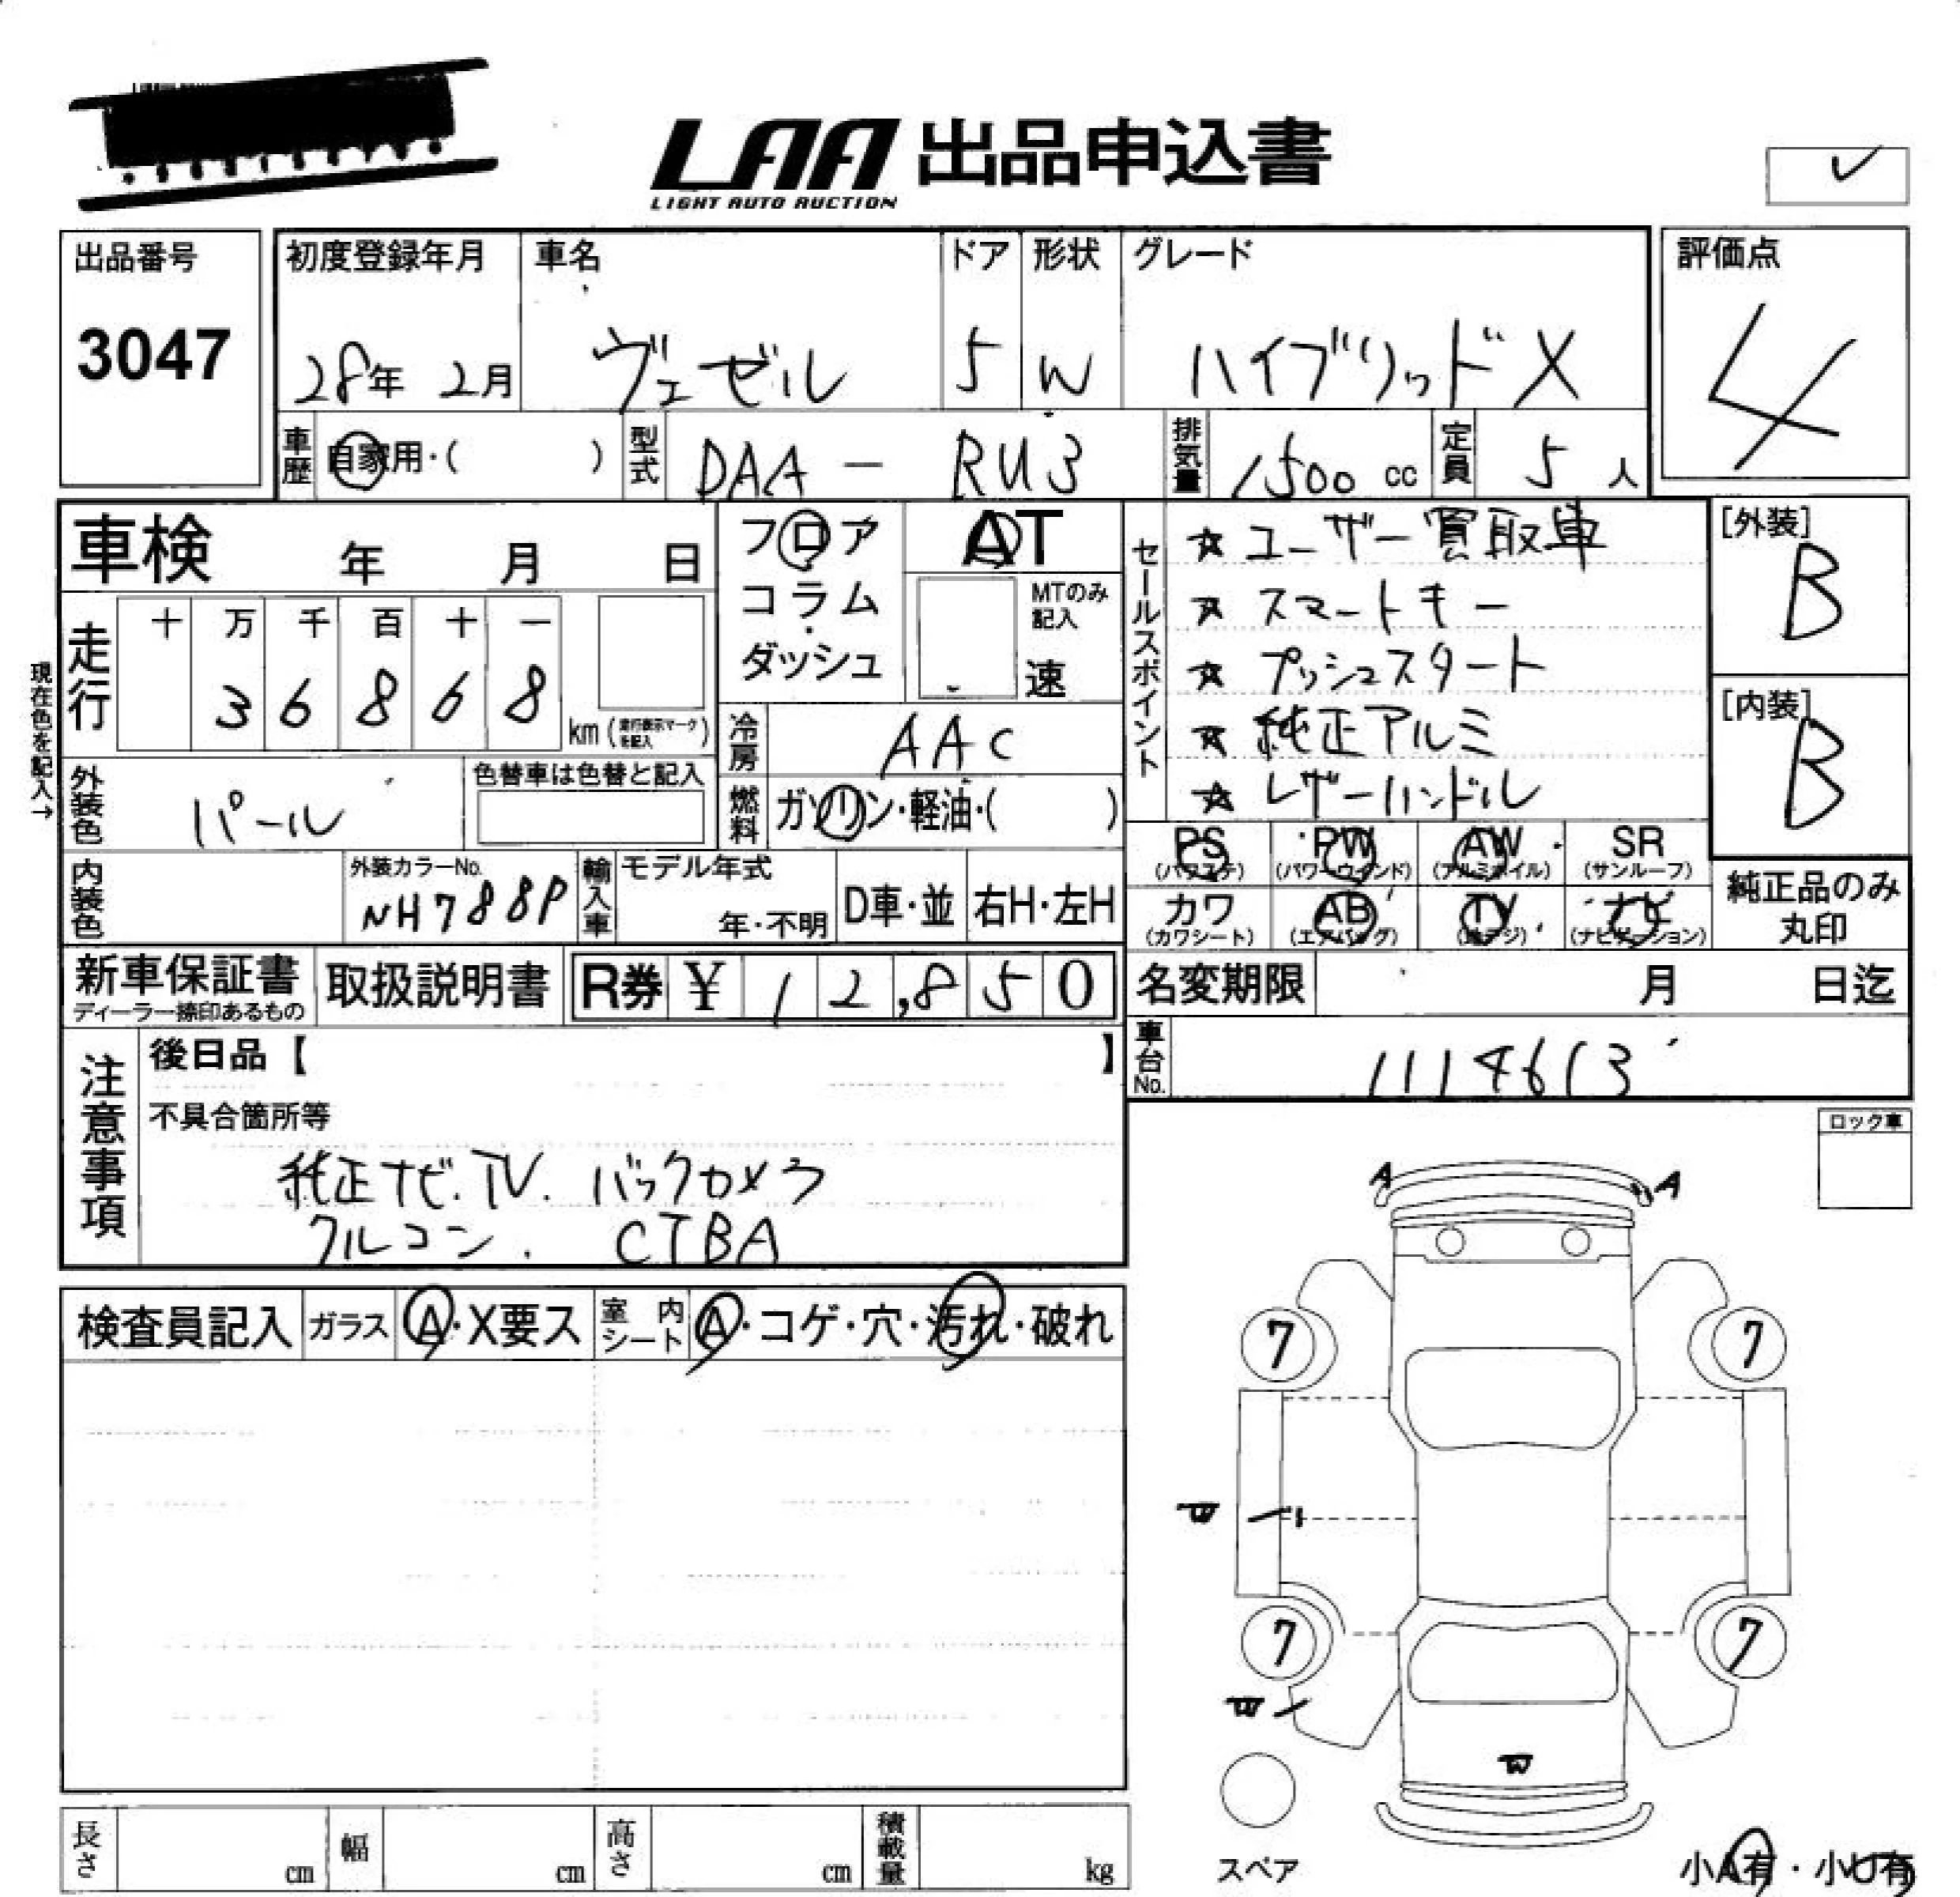 LAA 出品申込書
LIGHT AUTO AUCTION
出品番号
3047
初度登録年月
28年 2月
車名
ヴェゼル
ドア
5
形状
W
グレード
ハイブリッドX
評価点
4
車歴
自家用・( )
型式
DAA - RU3
排気量
1500 cc
定員
5 人
車検 年 月 日
フロア
コラム
・
ダッシュ
AT
MTのみ
記入
速
セールスポイント
☆ ユーザー買取車
☆ スマートキー
☆ プッシュスタート
☆ 純正アルミ
☆ レザーハンドル
[外装]
B
[内装]
B
現在色を記入→
走行
十 万 千 百 十 一
3 6 8 6 8
km (走行表示マークを記入)
冷房
AAC
外装色
パール
色替車は色替と記入
燃料
ガソリン・軽油・( )
PS
(パワステ)
PW
(パワーウィンド)
AW
(アルミホイル)
SR
(サンルーフ)
内装色
外装カラーNo.
NH788P
輸入車
モデル年式
年・不明
D車・並
右H・左H
カワ
(カワシート)
AB
(エアバッグ)
TV
(地デジ)
ナビ
(ナビゲーション)
純正品のみ
丸印
新車保証書
ディーラー捺印あるもの
取扱説明書
R券 ¥ 1 2,8 5 0
名変期限 月 日迄
車台No.
1114613
注意事項
後日品【 】
不具合箇所等
純正ナビ. TV. バックカメラ
クルコン. CTBA
ロック車
A A
検査員記入
ガラス
A・X要ス
室内シート
A・コゲ・穴・汚れ・破れ
7 7
7 7
W
スペア
小A有・小U有
長さ cm
幅 cm
高さ cm
積載量 kg